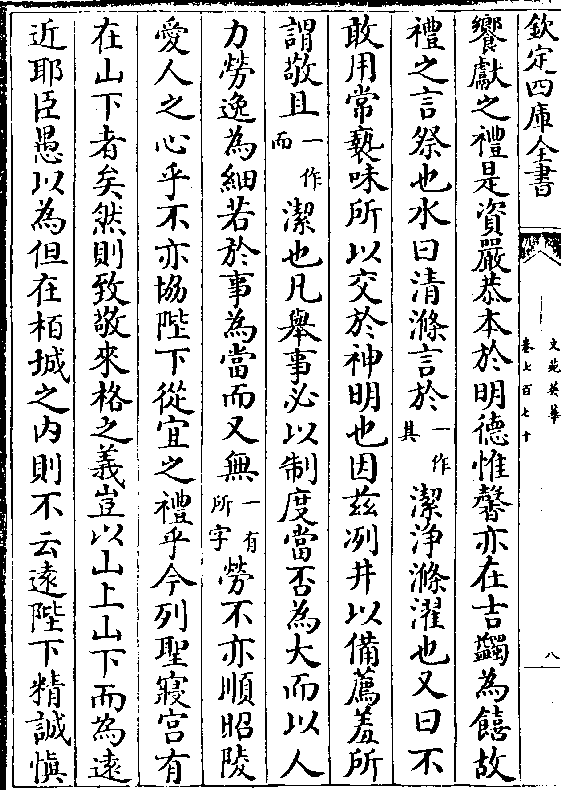 欽定四庫全書
文苑英華
卷七百七十
八
饗獻之禮是資嚴恭本於明德惟馨亦在吉蠲為饎故
禮之言祭也水曰清滌言於一作其潔淨滌濯也又曰不
敢用常褻味所以交於神明也因茲冽井以備薦羞所
謂敬且一作而潔也凡舉事必以制度當否為大而以人
力勞逸為細若於事為當而又無一有所字勞不亦順昭陵
愛人之心乎不亦協陛下從宜之禮乎今列聖寢宮有
在山下者矣然則致敬來格之義豈以山上山下而為遠
近耶臣愚以為但在栢城之内則不云遠陛下精誠慎